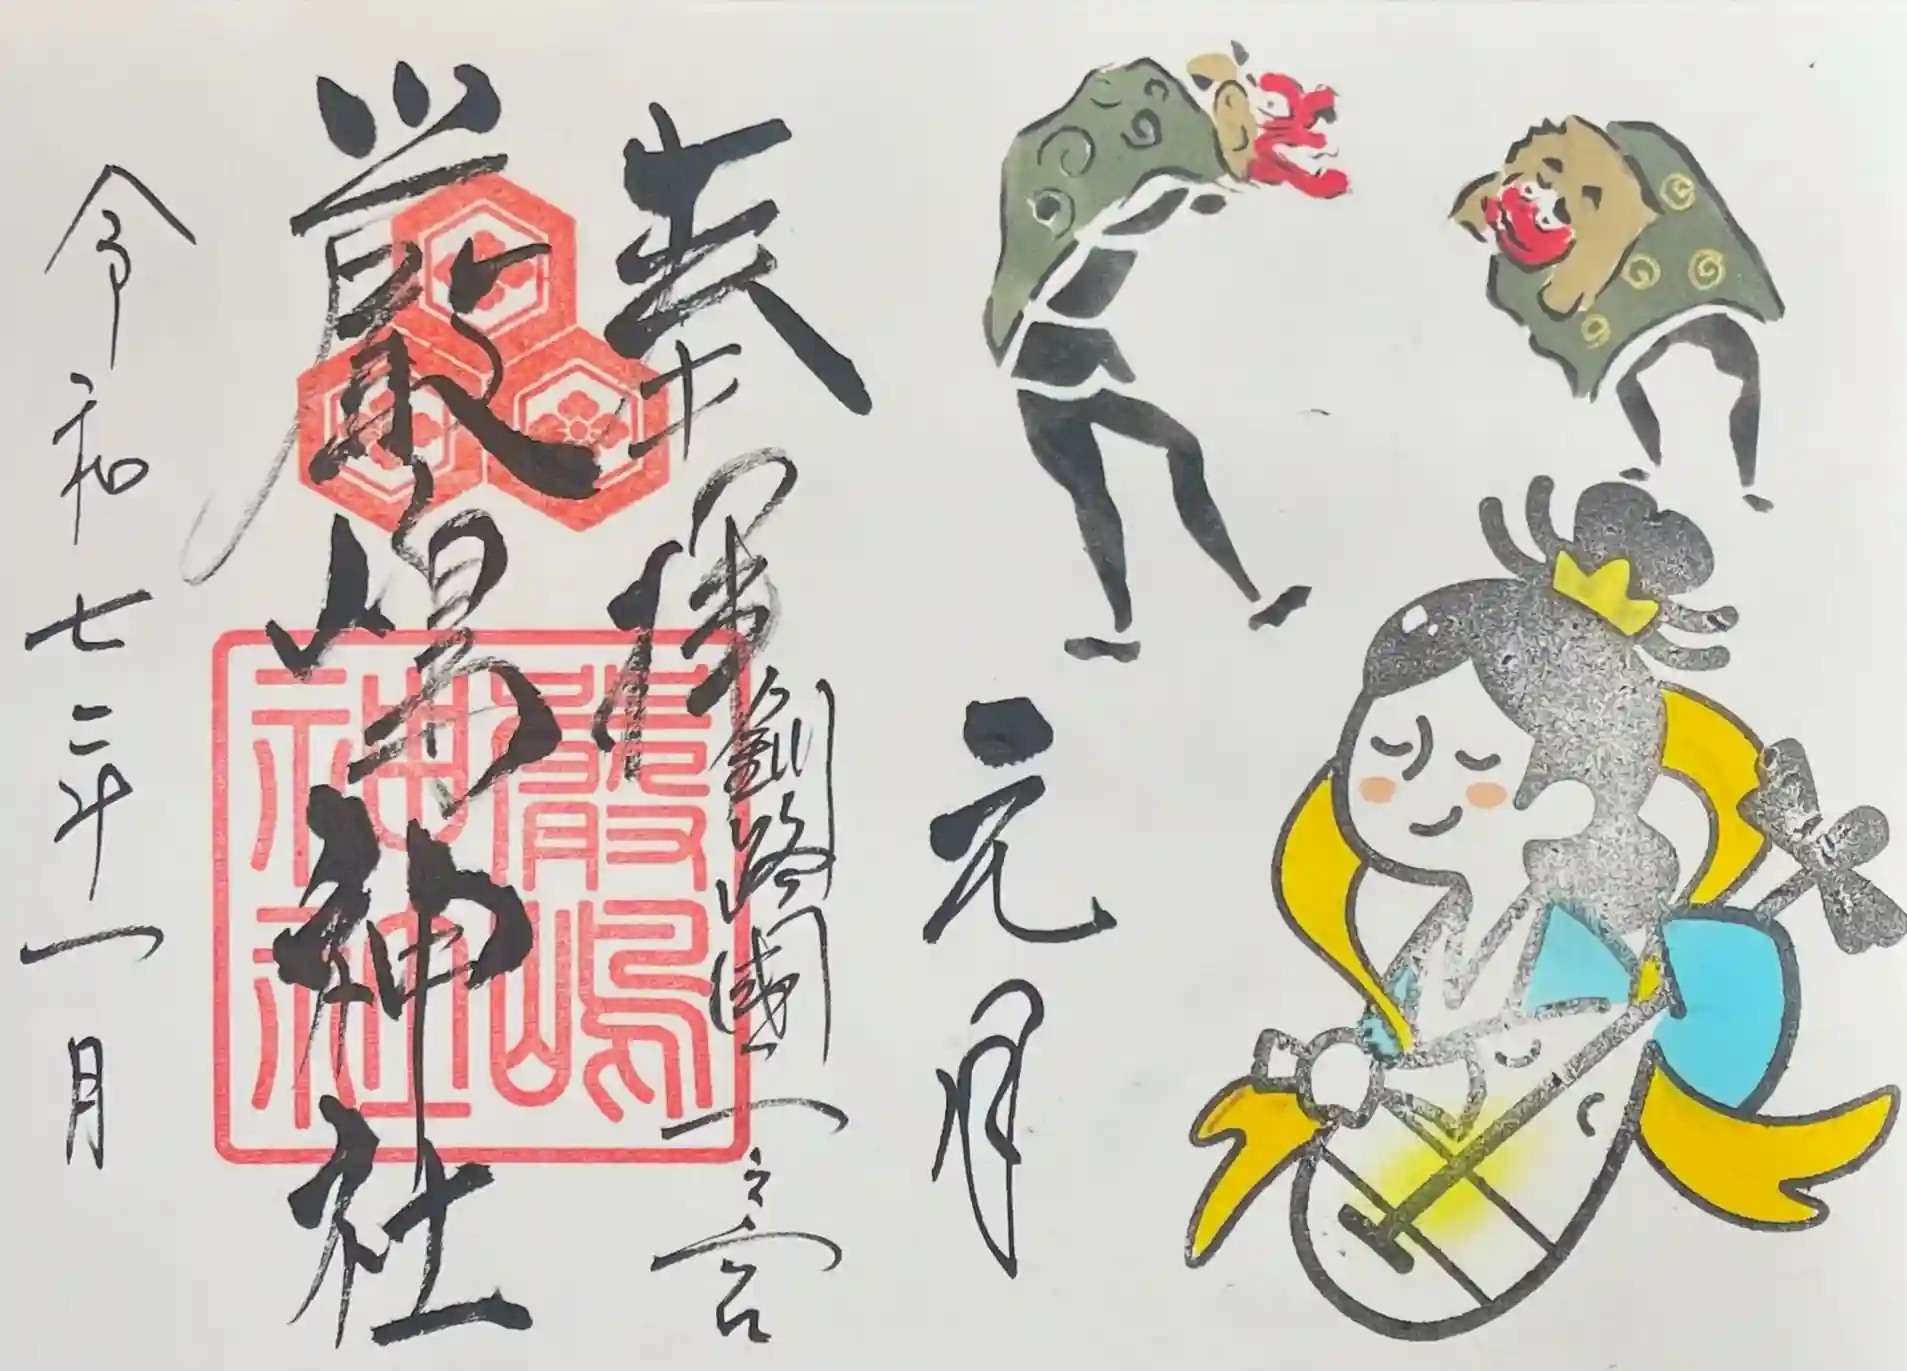 元月
奉拝
釧路國一之宮
厳嶋神社
嚴嶋神社
令和七年一月